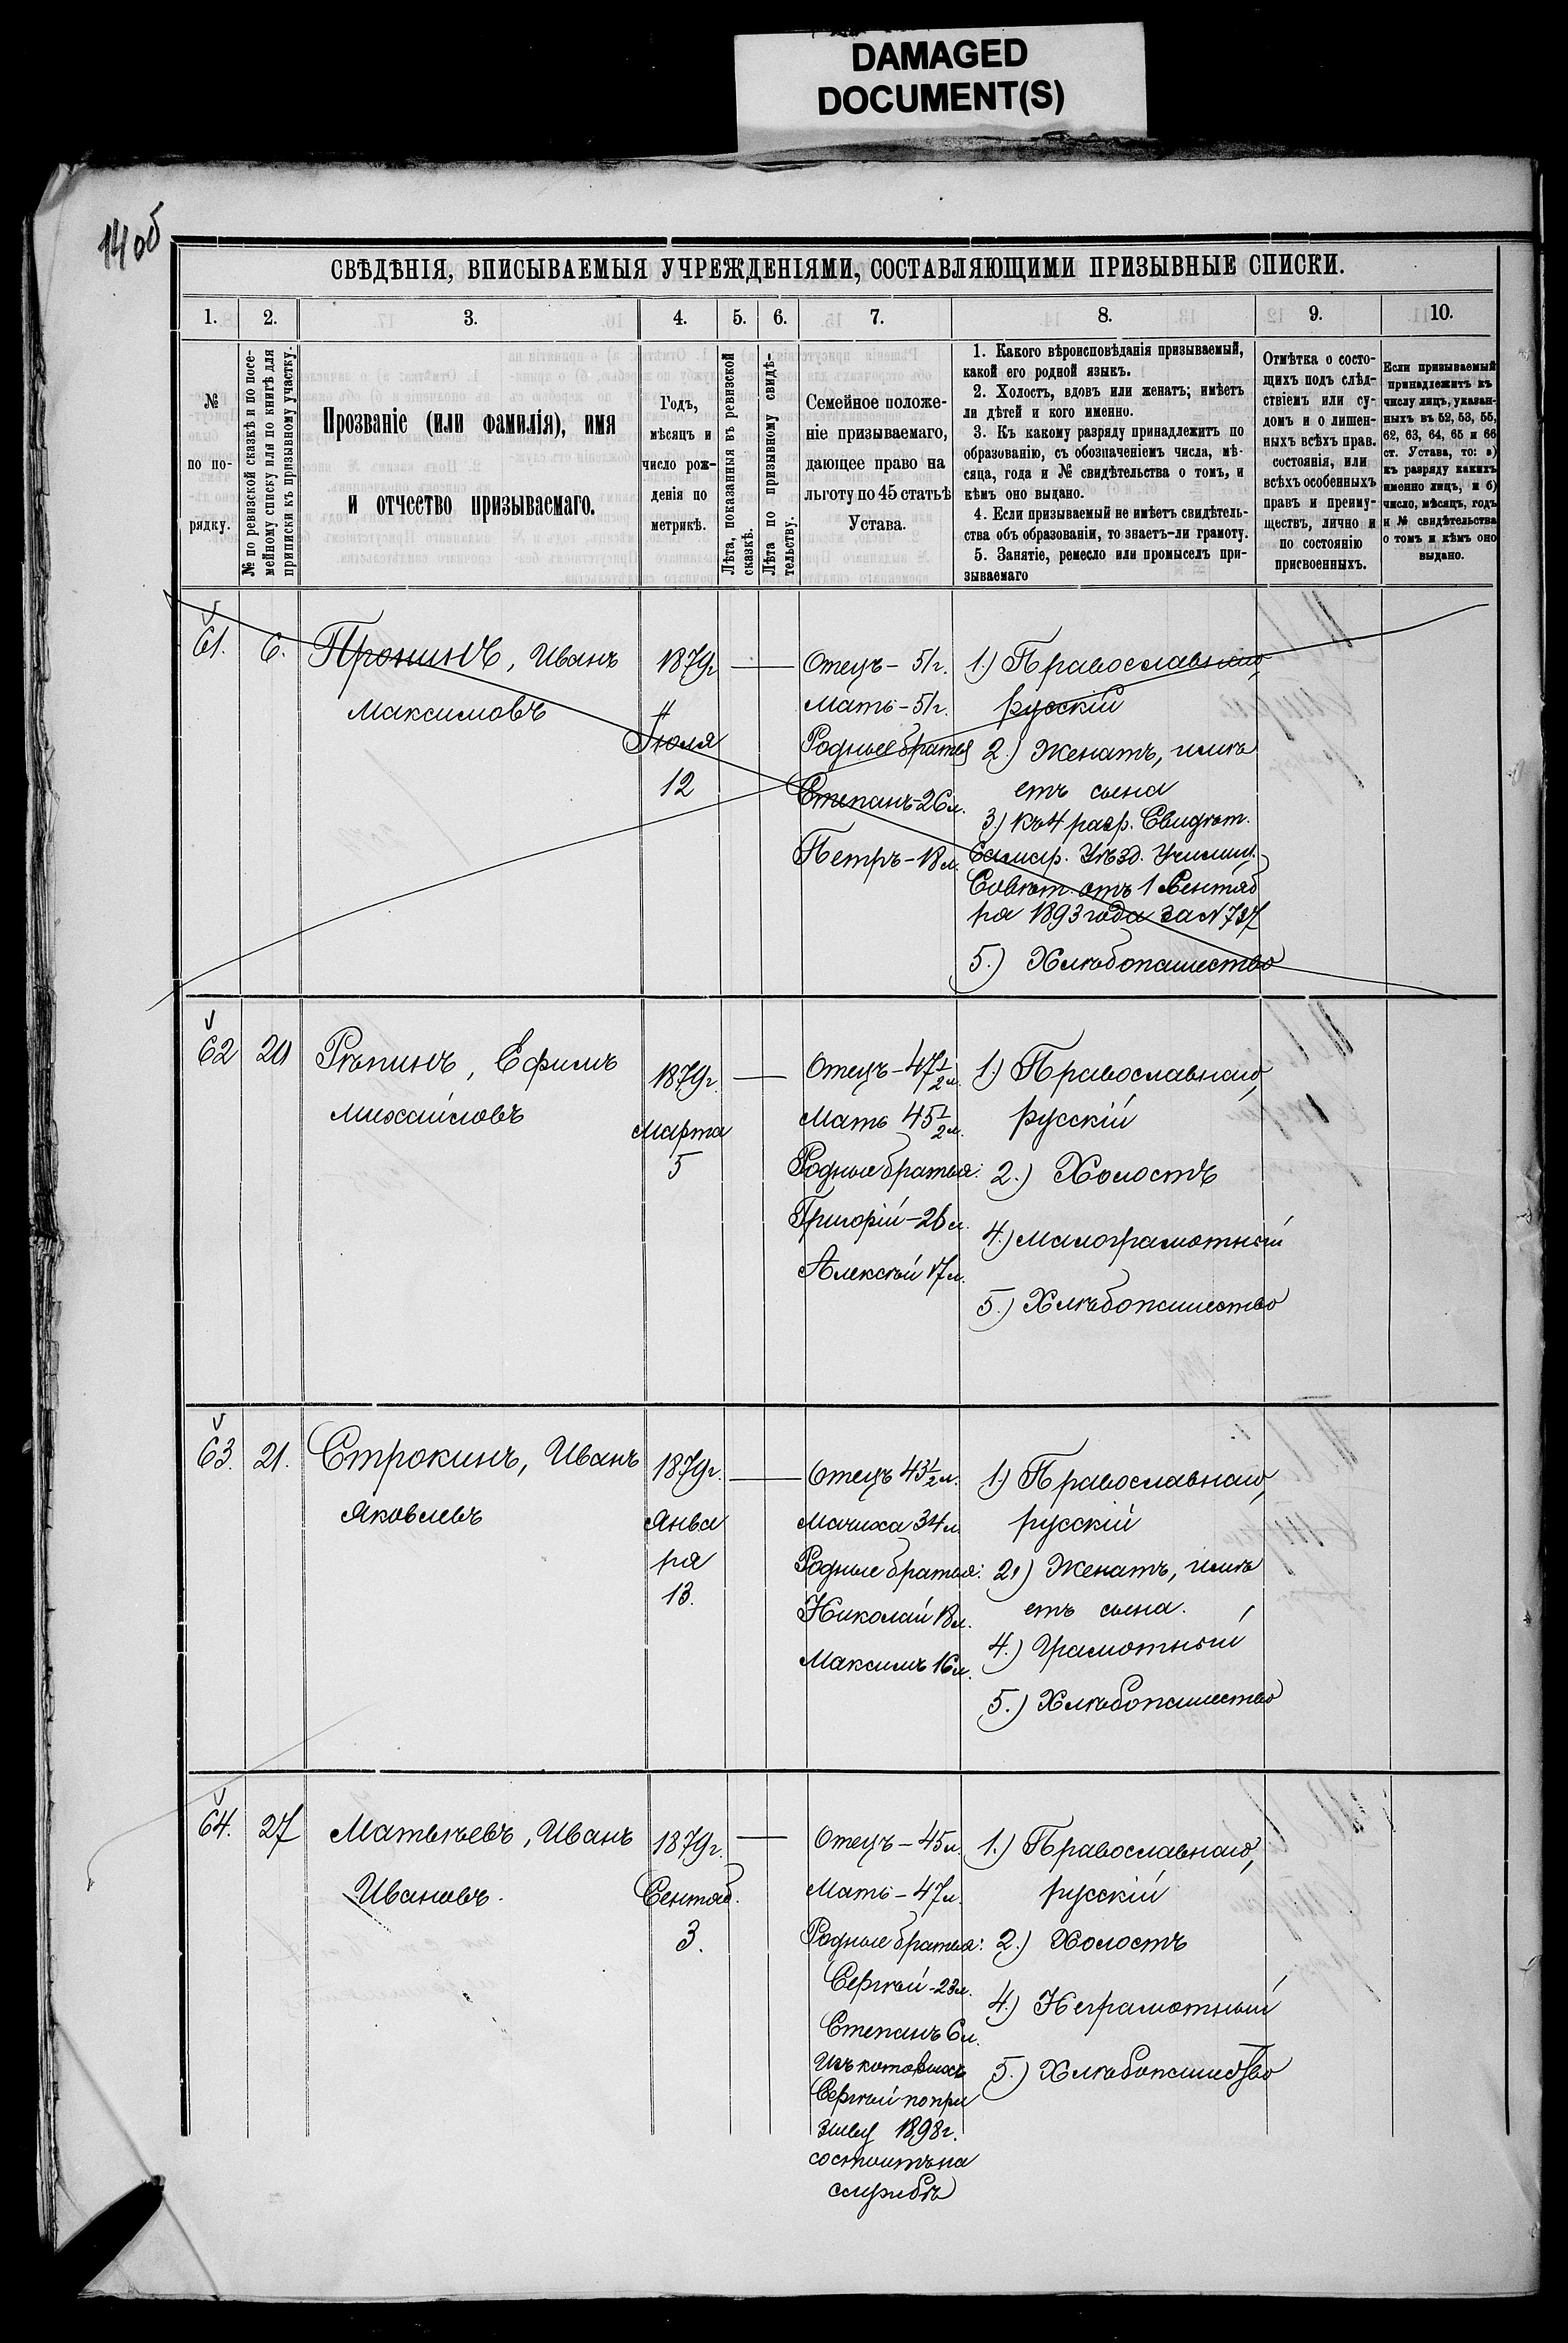 DAMAGED
DOCUMENT(S)
14 об
СВѢДѢНІЯ, ВПИСЫВАЕМЫЯ УЧРЕЖДЕНІЯМИ, СОСТАВЛЯЮЩИМИ ПРИЗЫВНЫЕ СПИСКИ.
1. 2. 3. 4. 5. 6. 7. 8. 9. 10.
№
по по-
рядку.
№ по ревизской сказкѣ и по посе-
мейному списку или по книгѣ для
приписки къ призывному участку.
Прозваніе (или фамилія), имя
и отчество призываемаго.
Годъ,
мѣсяцъ и
число рож-
денія по
метрикѣ.
Лѣта, показанныя въ ревизской
сказкѣ.
Лѣта по призывному свидѣ-
тельству.
Семейное положе-
ніе призываемаго,
дающее право на
льготу по 45 статьѣ
Устава.
1. Какого вѣроисповѣданія призываемый,
какой его родной языкъ.
2. Холостъ, вдовъ или женатъ; имѣетъ
ли дѣтей и кого именно.
3. Къ какому разряду принадлежитъ по
образованію, съ обозначеніемъ числа, мѣ-
сяца, года и № свидѣтельства о томъ, и
кѣмъ оно выдано.
4. Если призываемый не имѣетъ свидѣтель-
ства объ образованіи, то знаетъ-ли грамоту.
5. Занятіе, ремесло или промыселъ при-
зываемаго
Отмѣтка о состо-
щихъ подъ слѣд-
ствіемъ или су-
домъ и о лишен-
ныхъ всѣхъ прав.
состоянія, или
всѣхъ особенныхъ
правъ и преиму-
ществъ, лично и
по состоянію
присвоенныхъ.
Если призываемый
принадлежитъ къ
числу лицъ, указан-
ныхъ въ 52, 53, 55,
62, 63, 64, 65 и 66
ст. Устава, то: а)
къ разряду какихъ
именно лицъ, и б)
число, мѣсяцъ, годъ
и № свидѣтельства
о томъ и кѣмъ оно
выдано.
61. 6. Пронинъ, Иванъ
Максимовъ
1879г
Іюля
12
Отецъ - 51г.
Мать - 51г.
Родные братья
Степанъ - 26л.
Петръ - 18л.
1.) Православнаго,
русскій
2.) Женатъ, имѣ
етъ сына
3) Къ 4 разр. Свидѣт.
Самар. Уѣзд. Училищ.
Совѣт. отъ 1 Сентяб
ря 1893 года за N 727
5.) Хлѣбопашество
62 20 Рѣпинъ, Ефимъ
Михайловъ
1879г.
Марта
5
Отецъ - 47 1/2 л.
Мать 45 1/2 л.
Родные братья:
Григорій - 26л.
Алексѣй 17л.
1.) Православнаго,
русскій
2.) Холостъ
4.) Малограмотный
5.) Хлѣбопашество
63. 21. Строкинъ, Иванъ
Яковлевъ
1879г.
Янва
ря
13.
Отецъ 43 1/2 л.
Мачиха 34л.
Родные братья:
Николай 18л.
Максимъ 16л.
1.) Православнаго,
русскій
2.) Женатъ, имѣ
етъ сына.
4.) Грамотный
5.) Хлѣбопашество
64. 27 Матвѣевъ, Иванъ
Ивановъ.
1879г.
Сентяб.
3.
Отецъ - 45л.
Мать - 47л.
Родные братья:
Сергѣй - 23л.
Степанъ 6л.
Изъ которыхъ
Сергѣй по при
зыву 1898г.
состоитъ на
службѣ
1.) Православнаго,
русскій
2.) Холостъ
4.) Неграмотный
5.) Хлѣбопашество